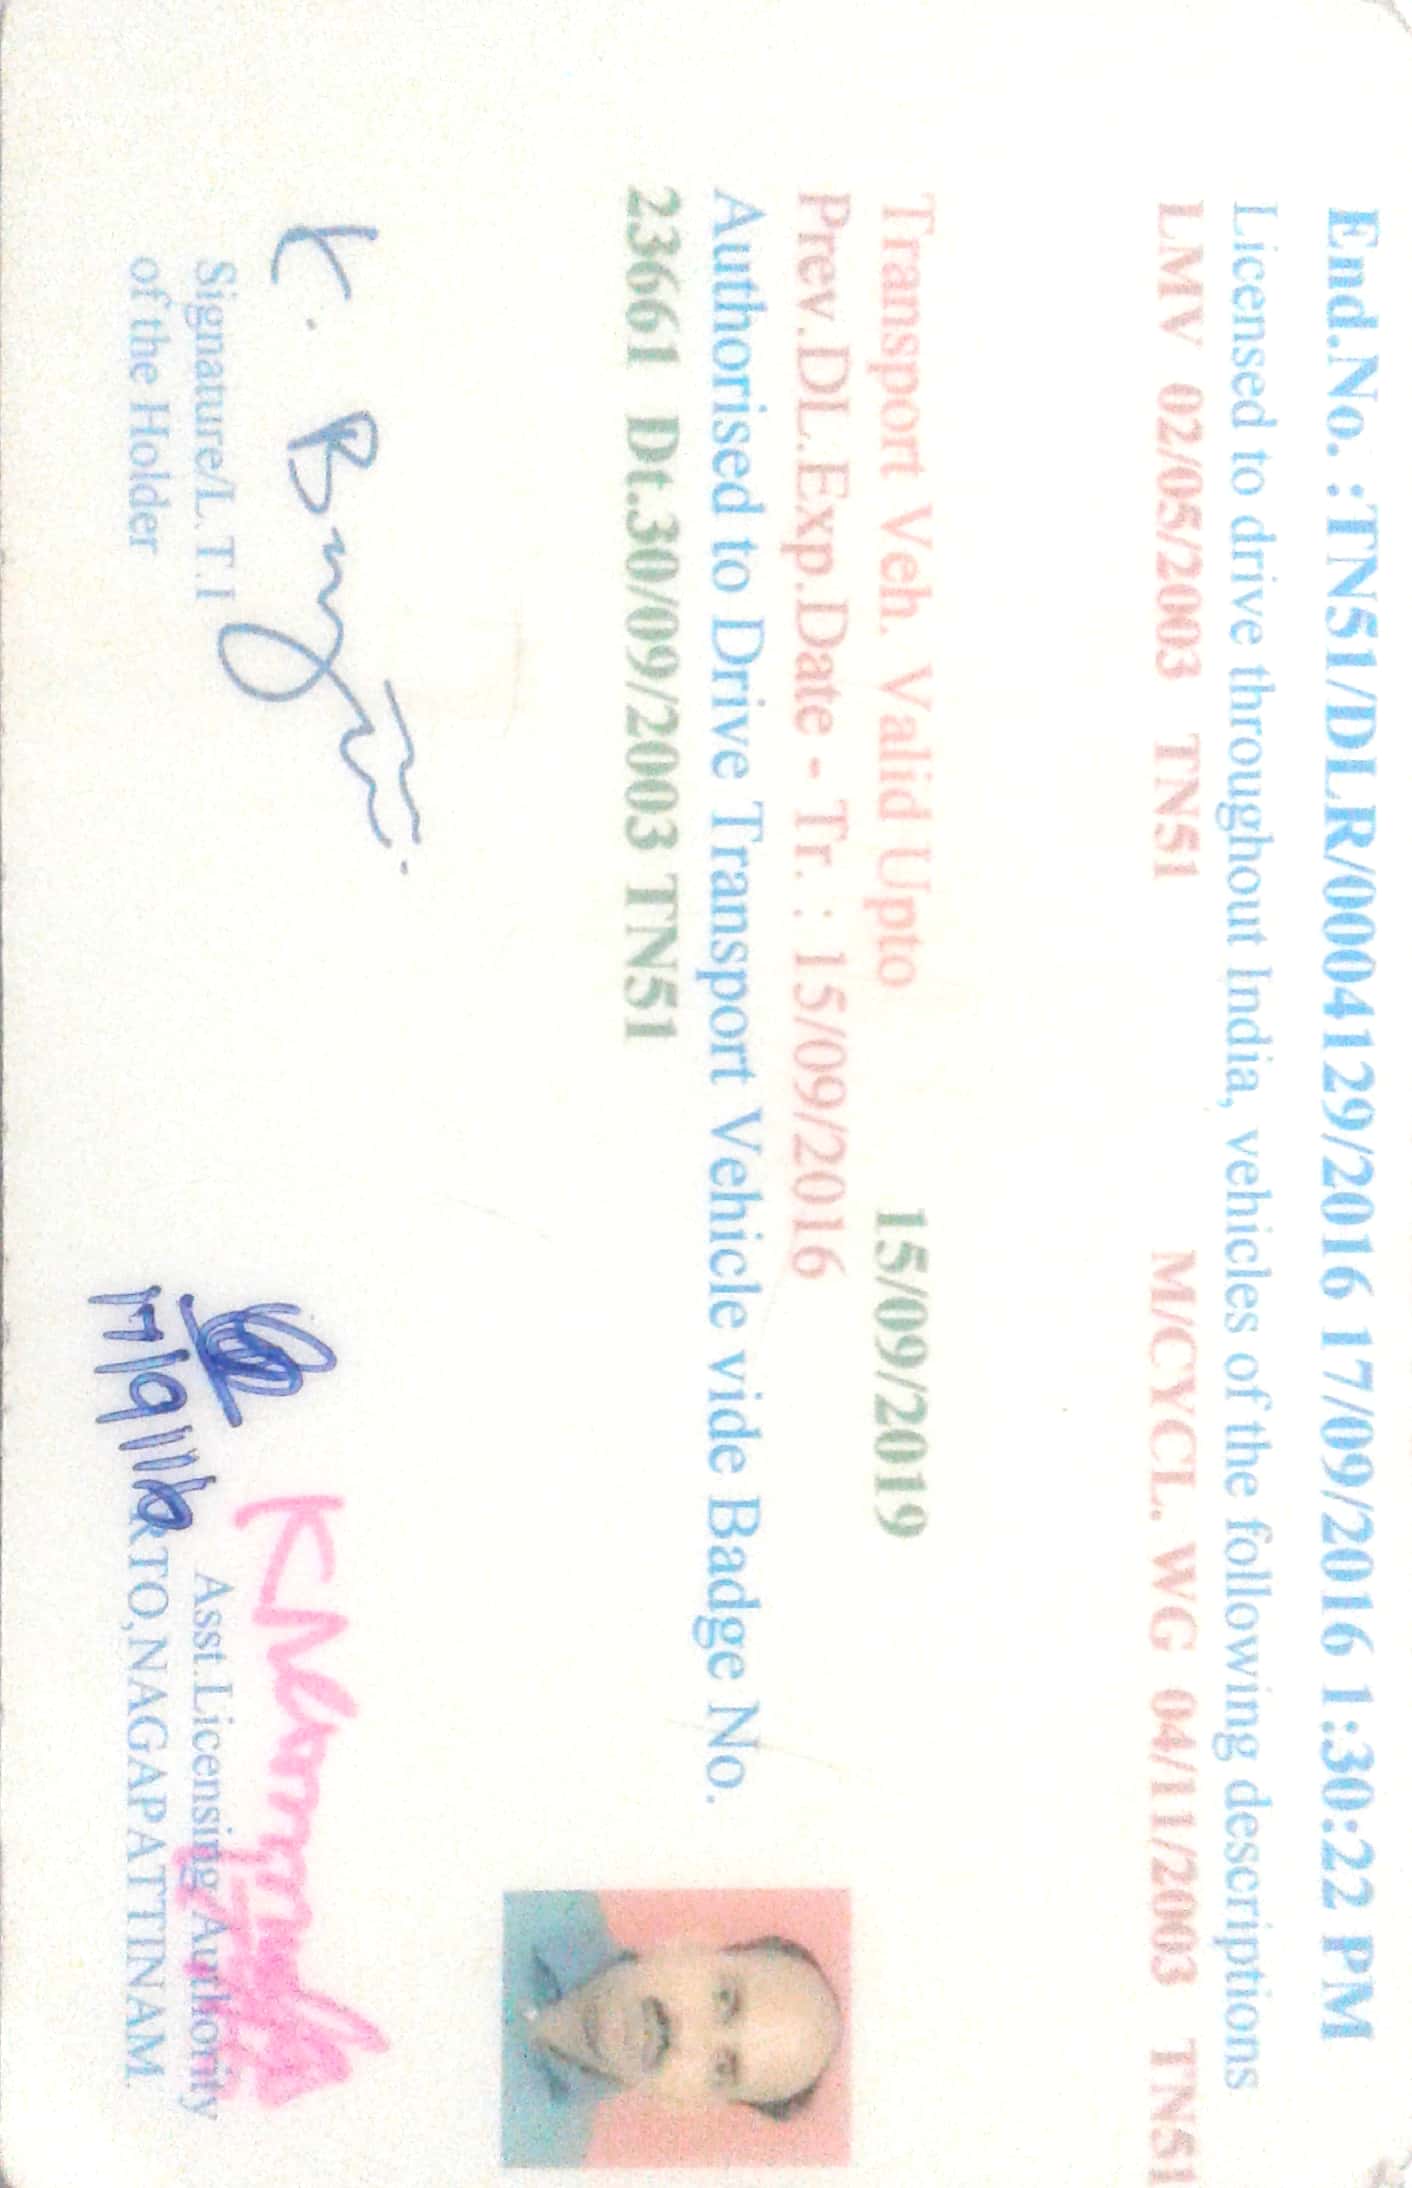 End.No. :TN51/DLR/0004129/2016 17/09/2016 1:30:22 PM
Licensed to drive throughout India, vehicles of the following descriptions
LMV 02/05/2003 TN51 M/CYCL. WG 04/11/2003 TN51
Transport Veh. Valid Upto 15/09/2019
Prev.DL.Exp.Date - Tr. : 15/09/2016
Authorised to Drive Transport Vehicle vide Badge No.
23661 Dt.30/09/2003 TN51
K.
Signature/L.T.I
of the Holder
17/9/16
Asst.Licensing Authority
RTO,NAGAPATTINAM.